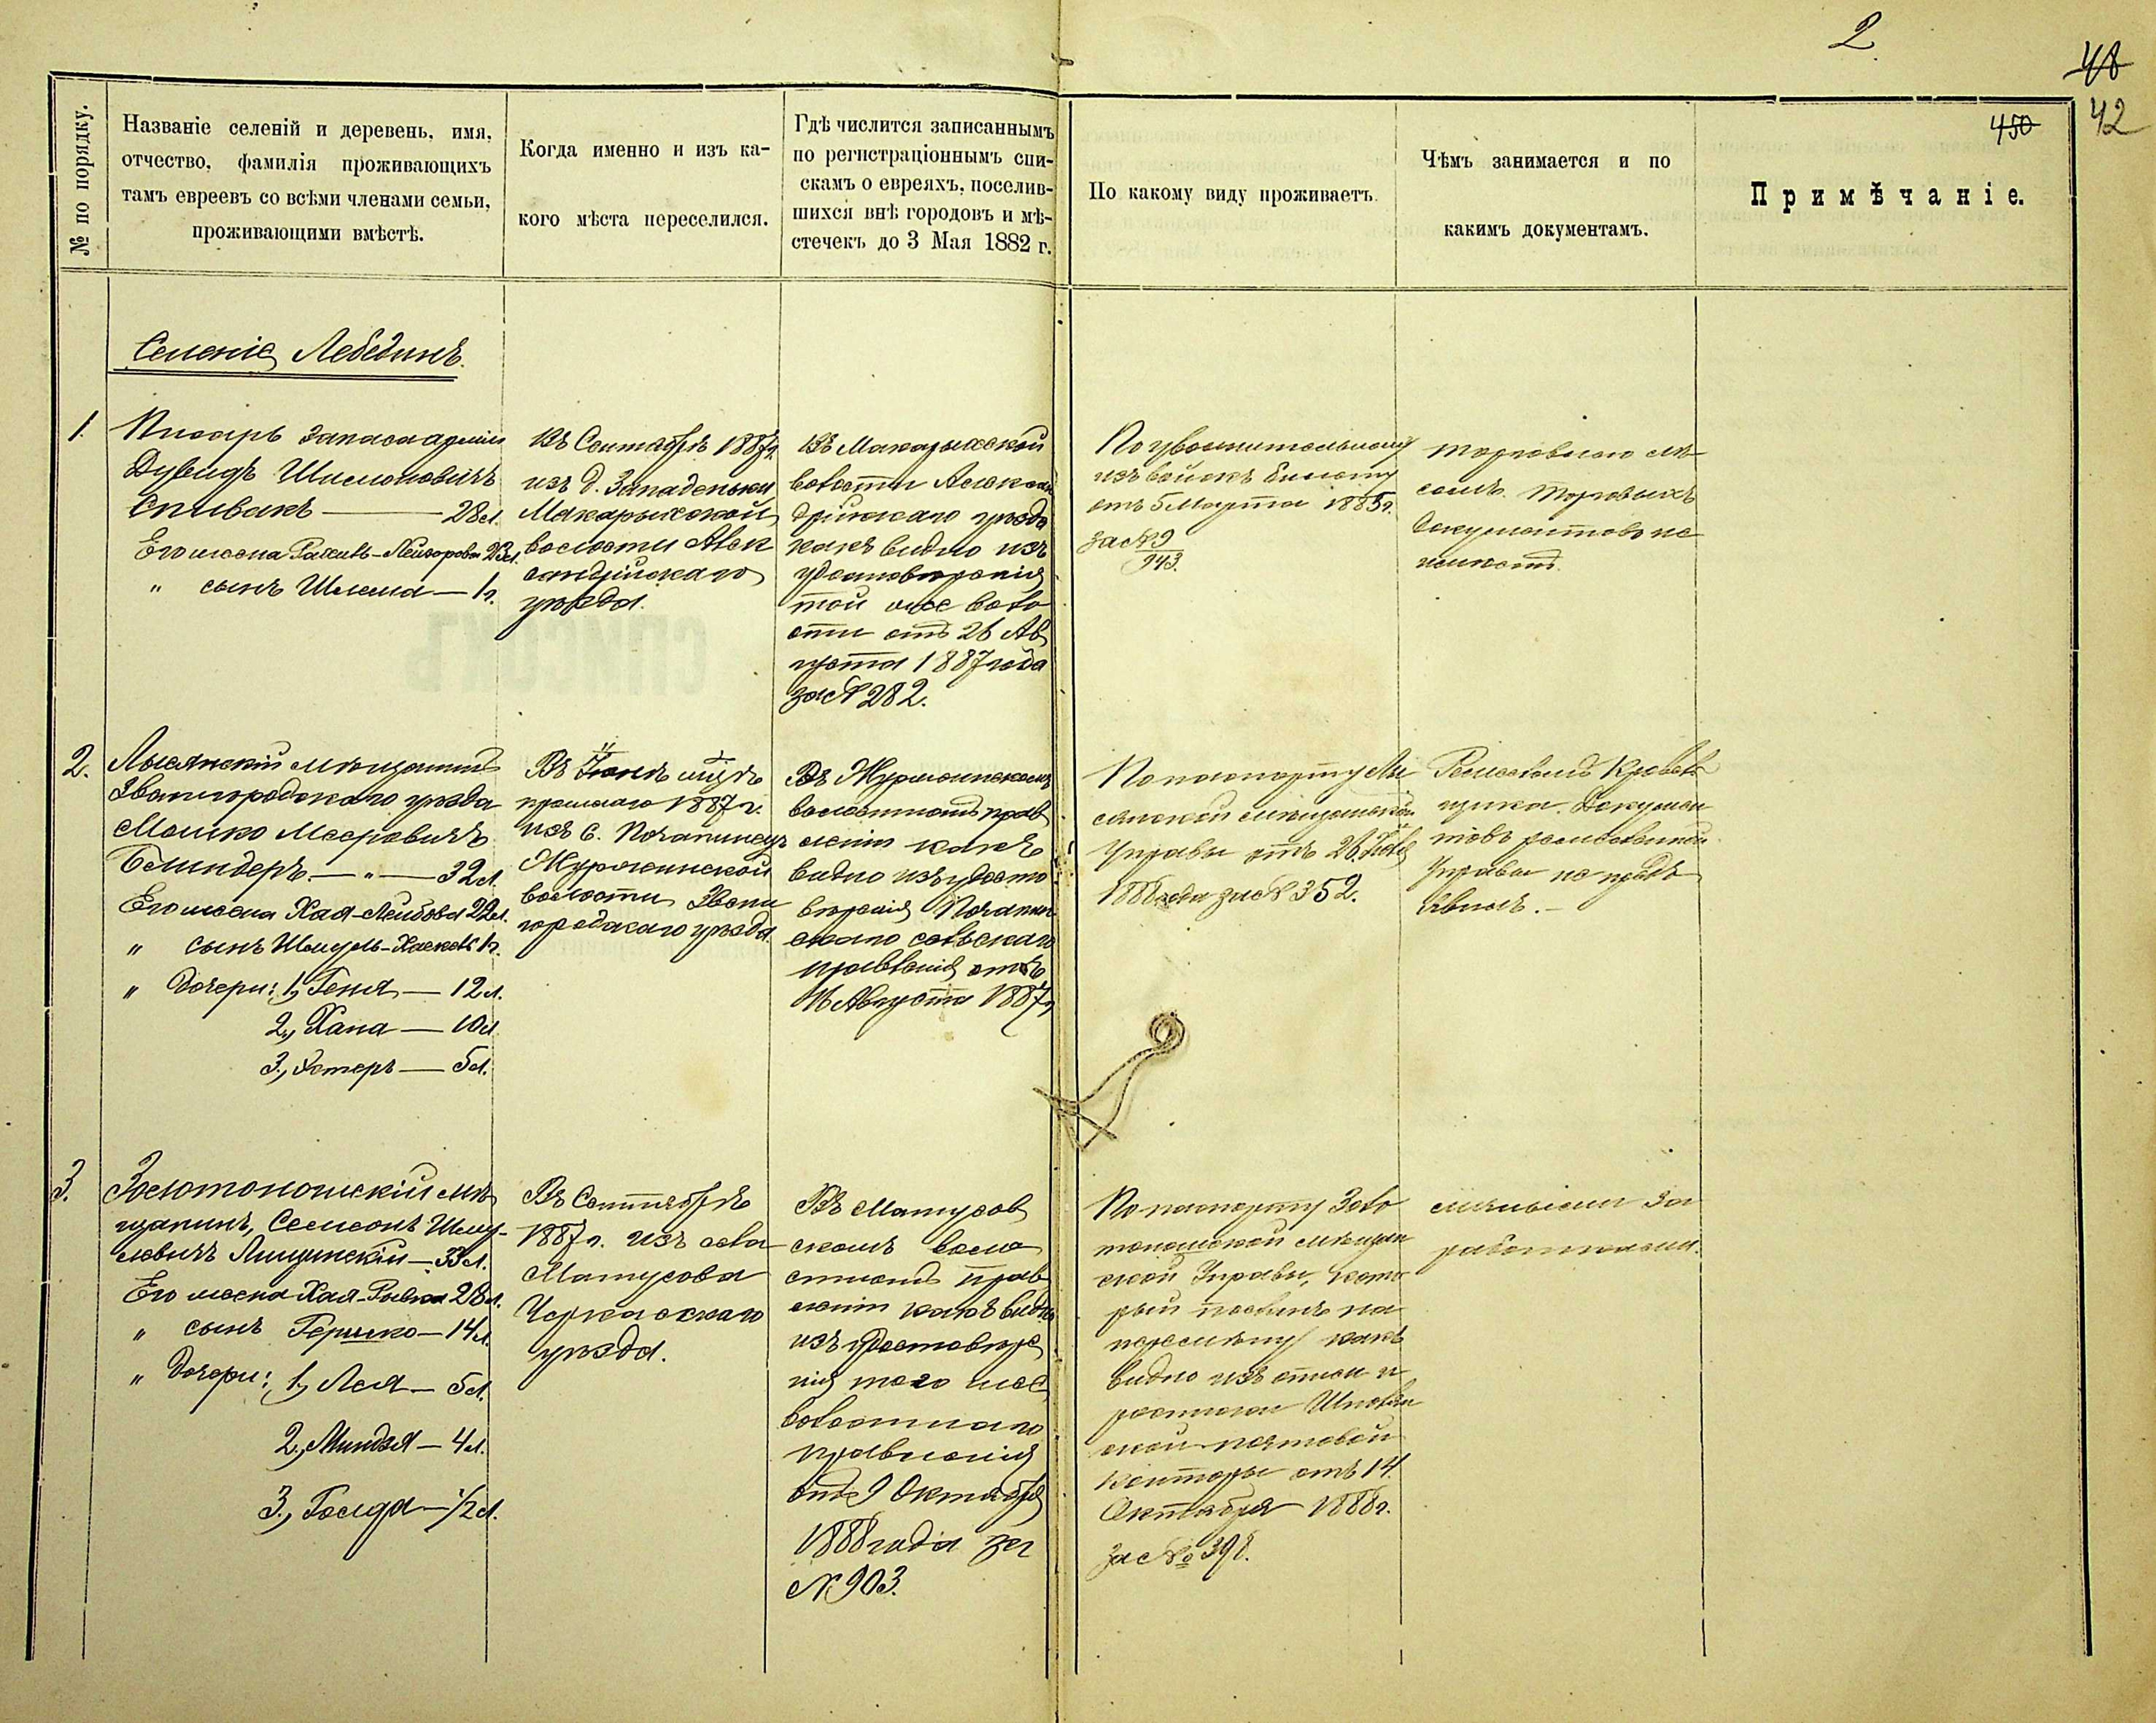 2
48
42
450
№ по порядку.
Названіе селеній и деревень, имя,
отчество, фамилія проживающихъ
тамъ евреевъ со всѣми членами семьи,
проживающими вмѣстѣ.
Когда именно и изъ ка-
кого мѣста переселился.
Гдѣ числится записаннымъ
по регистраціоннымъ спи-
скамъ о евреяхъ, поселив-
шихся внѣ городовъ и мѣ-
стечекъ до 3 Мая 1882 г.
По какому виду проживаетъ.
Чѣмъ занимается и по
какимъ документамъ.
Примѣчаніе.
Селеніе Лебединъ.
1.
Писарь запаса арміи
Дувидъ
Спивакъ — 28 л.
Его жена 23 л.
" сынъ Шлема — 1 г.
Въ Сентябрѣ 1887 г.
изъ д. Западеньки
Макарыхской
волости Алек
сандрійскаго
уѣзда.
Въ Макарыхской
волости Алексан
дрійскаго уѣзда
какъ видно изъ
удостовѣренія
той же воло
сти отъ 26 Ав
густа 1887 года
за № 282.
По увольнительному
изъ войскъ билету
отъ 5 Марта 1885 г.
за № 9
943.
Торговлею лѣ
сомъ. Торговыхъ
документовъ не
имѣетъ.
2.
Лысянскій мѣщанинъ
Звенигородскаго уѣзда
Мошко Мееровичъ
Белиндеръ — " — 32 л.
Его жена Хая-Лейбова 22 л.
" сынъ 1 г.
" дочери: 1, Геня — 12 л.
2, Хана — 10 л.
3, Эстеръ — 5 л.
Въ Іюнѣ мѣс.
прошлаго 1887 г.
изъ с. Почапинецъ
Журжинской
волости Звени
городскаго уѣзда
Въ Журжинскомъ
волостномъ прав
леніи какъ
видно изъ удосто
вѣренія Почапин
скаго сельскаго
правленія отъ
16 Августа 1887 г.
По паспорту Лы
сянской мѣщанской
Управы отъ 26
1888 года за № 352.
Ремесломъ
Докумен
товъ ремесленной
Управы не предъ
явилъ. —
3.
Золотоношскій мѣ
щанинъ, Семсонъ Шму-
левичъ Лищинскій — 33 л.
Его жена Хая-Ривка 28 л.
" сынъ Гершко — 14 л.
" дочери: 1, Лея — 5 л.
2, Миндля — 4 л.
3, — 1/2 л.
Въ Сентябрѣ
1887 г. изъ села
Матусова
Черкасскаго
уѣзда.
Въ Матусов
скомъ воло
стномъ прав
леніи какъ видно
изъ удостовѣре
нія того же
волостнаго
правленія
отъ 9 Октября
1888 года за
№ 903.
По паспорту Золо
тоношской мѣщан
ской Управы, кото
рый посланъ на
перемѣну какъ
видно изъ
росписки Шполян
ской почтовой
конторы отъ 14
Октября 1888 г.
за № 398.
личными за
работками.